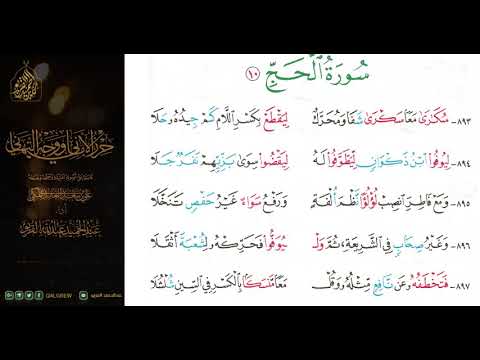 سُورَةُ ٱلْحَجِّ ١٠
٨٩٣- سُكَٰرَىٰ مَعًا سَكْرَىٰ شَفَا وَمُحَرَّكٌ لِيَقْطَعْ بِكَسْرِ اللَّامِ كَمْ جِيدُهُۥ حَلَا
٨٩٤- لِيُوفُوا ابْنُ ذَكْوَانٍ لِيَطَّوَّفُوا لَهُۥ لِيَقْضُوا سِوَىٰ بَزِّيِّهِمْ نَفَرٌ جَلَا
٨٩٥- وَمَعْ فَاطِرِ انْصِبْ لُؤْلُؤًا نَظْمُ الْفَةٍ وَرَفْعَ سَوَاءً غَيْرُ حَفْصٍ تَنَخَّلَا
٨٩٦- وَغَيْرُ صِحَابٍ فِي الشَّرِيعَةِ ثُمَّ وَلْـ يُوَفُّوا فَحَرِّكْهُ لِشُعْبَةَ أَثْقَلَا
٨٩٧- فَتَخْطَفُهُۥ عَنْ نَافِعٍ مِثْلُهُۥ وَقُلْ مَعًا مَنْسَكًا بِالْكَسْرِ فِي السِّينِ شُلْشُلَا
حرز الأماني ووجه التهاني